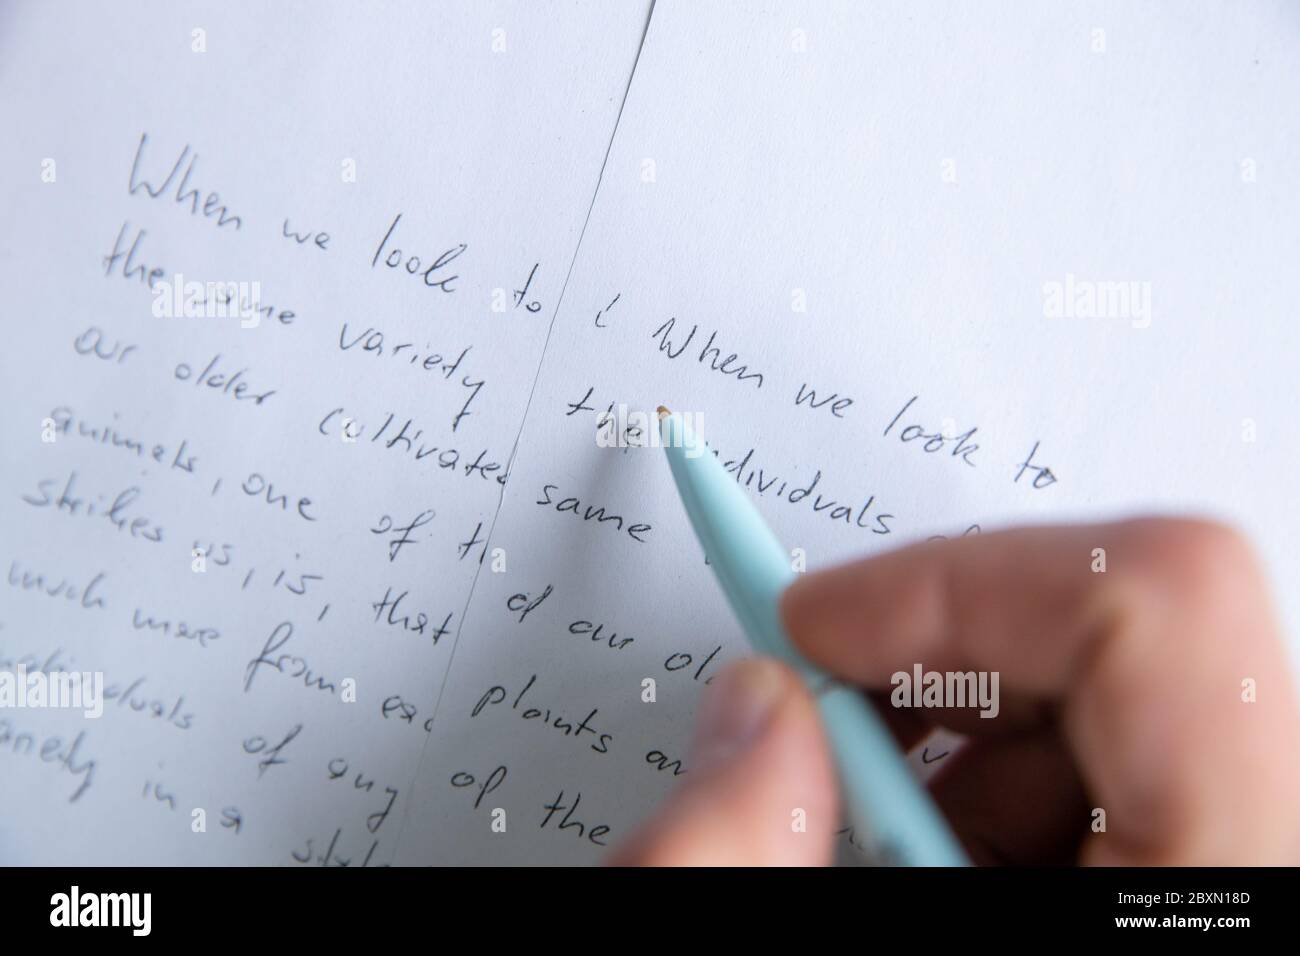 When we look to
the same variety
our older cultivated
animals, one of t
strikes us, is, that
much more from eac
individuals of any
in a
When we look to
the individuals of
same
of our old
plants an
of the
alamy
Image ID: 2BXN18D
www.alamy.com